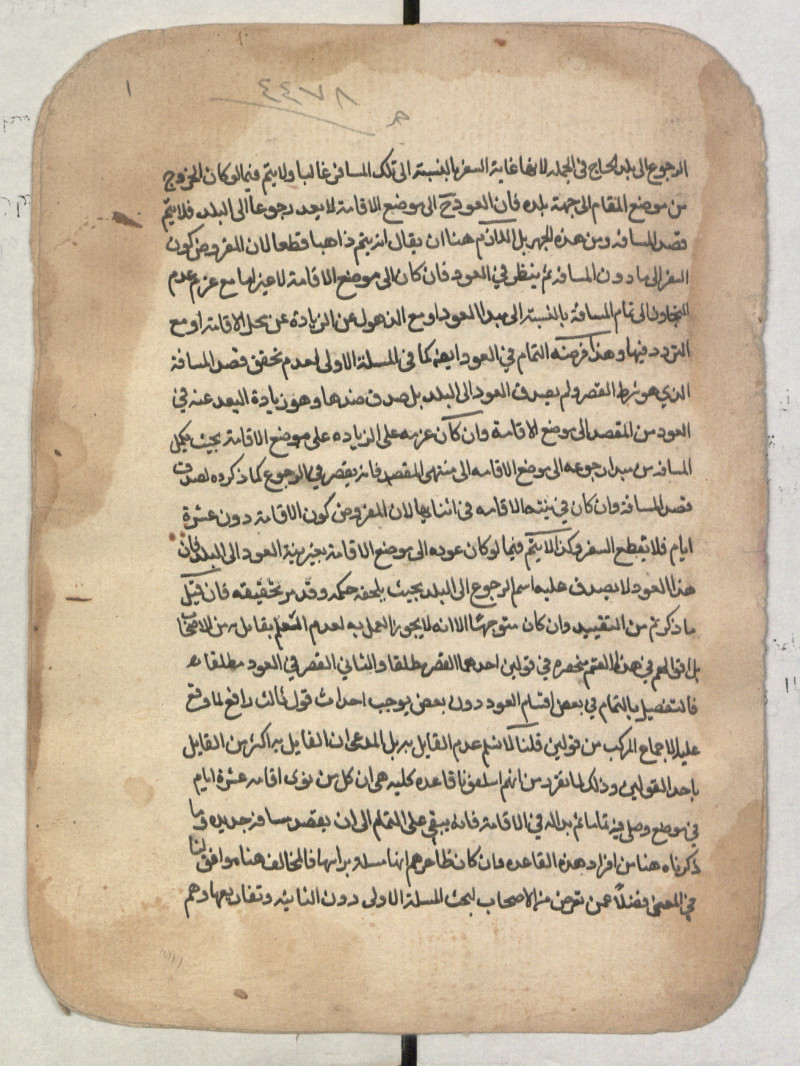 ١
٨٧٤٤
الرجوع الى بلد الحاج في الجملة لانها غاية السفر بالنسبة الى تلك المسافر غالبا ولا يتم فيما لو كان الخروج
من موضع المقام الى جهة بلده فان العود ح الى موضع الاقامة لا يعد رجوعا الى البلد فلا يتم
قصد المسافة ومن هذه الجهة بل اللازم هنا ان يقال انه يتم ذاهبا قطعا لان المفروض كون
السفر الى ما دون المسافة ثم ينظر في العود فان كان الى موضع الاقامة لا غير اما مع عزم عدم
التجاوز الى تمام المسافة بالنسبة الى مبدا العود او مع الذهول عن الزيادة عن محل الاقامة او مع
التردد فيها وهذا فرضه التمام في العود ايضا كما في المسلة الاولى لعدم تحقق قصد المسافة
الذي هو شرط القصر ولم يصدق العود الى البلد بل صدق ضدها وهو زيادة البعد عنه في
العود من المقصد الى موضع الاقامة وان كان عزمه على الزياده على موضع الاقامة بحيث يكمل
المسافة من مبدا رجوعه الى موضع الاقامه الى منتهى المقصد فانه يقصر في الرجوع كما ذكروه لصدق
قصد المسافة وان كان في نيته الاقامه في اثنايها لان المفروض كون الاقامة دون عشرة
ايام فلا تقطع السفر وكذا لا يتم فيما لو كان عوده الى موضع الاقامة بغير نية العود الى البلد فان
هذا العود لا يصدق عليه اسم الرجوع الى البلد بحيث يلحقه حكمه وقد مر تحقيقه فان قيل
ما ذكرتم من التقييد وان كان متوجها الا انه لا يجوز العمل به لعدم العلم بقايل به من الاصحاب
بل اقوالهم في هذا القسم منحصره في قولين احدهما القصر مطلقا والثاني القصر في العود مطلقا
فالتفصيل بالتمام في بعض اقسام العود دون بعض يوجب احداث قول ثالث رافع لما وقع
عليه الاجماع المركب من قولين قلنا لا نسلم عدم القايل به بل المدعى ان القايل به اكثر من القايل
باحد القولين وذلك لما تقرر من انهم اسلفونا قاعده كليه هي ان كل من نوى اقامة عشرة ايام
في موضع وصلى فيه تماما ثم بدا له في الاقامة فانه يبقى على التمام الى ان يقصد مسافة جديده وما
ذكرناه هنا من افراد هذه القاعده وان كان ظاهرهم انها مسلة براسها فالمخالف هنا موافق لنا
في المعنى فضلا عمن تعرض من الاصحاب لبحث المسلة الاولى دون الثانية وتفاريعها وهم